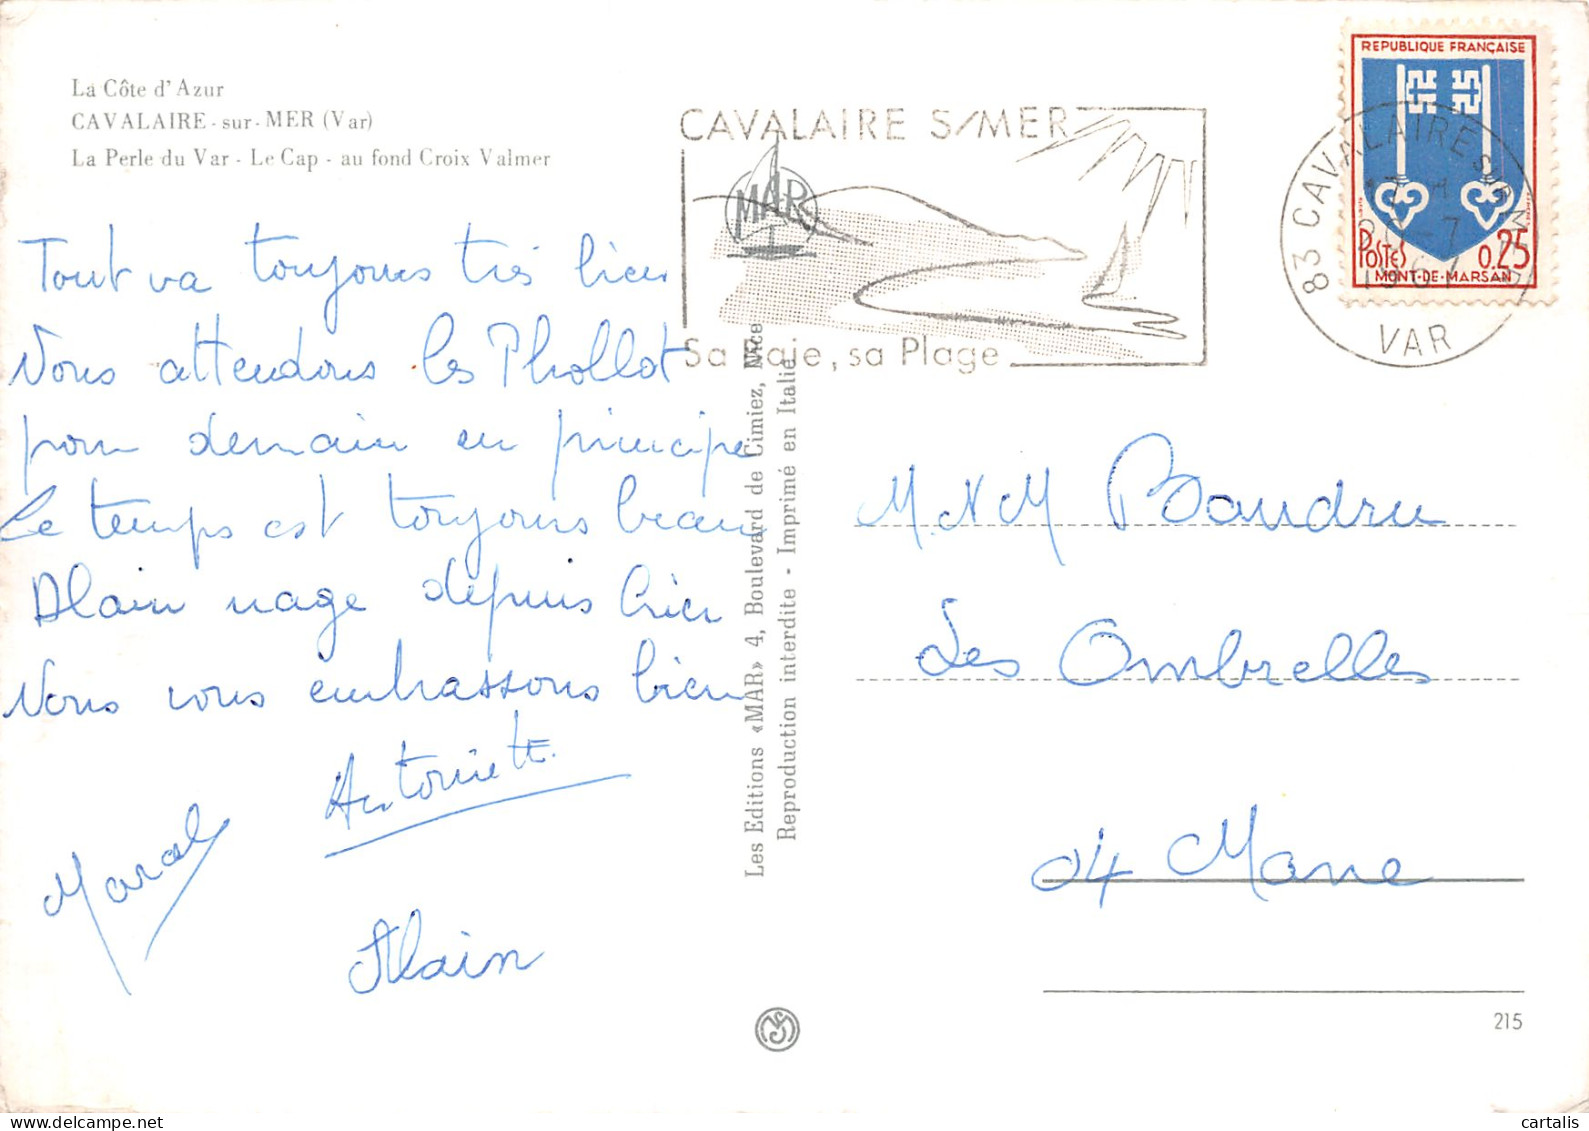 La Côte d'Azur
CAVALAIRE - sur - MER (Var)
La Perle du Var - Le Cap - au fond Croix Valmer
Tout va toujours très bien
Nous attendons les Phollot
pour demain en principe
Le temps est toujours beau
Alain nage depuis hier
Nous vous embrassons bien
Antoinette
Marcel
Alain
CAVALAIRE S/MER
MAR
Sa Baie, sa Plage
Les Editions «MAR» 4, Boulevard de Cimiez, Nice
Reproduction interdite - Imprimé en Italie
REPUBLIQUE FRANÇAISE
POSTES 0.25
MONT-DE-MARSAN
83 CAVALAIRE SUR MER
-7
1967
VAR
M. & M Baudru
Les Ombrelles
04 Mane
215
cartalis